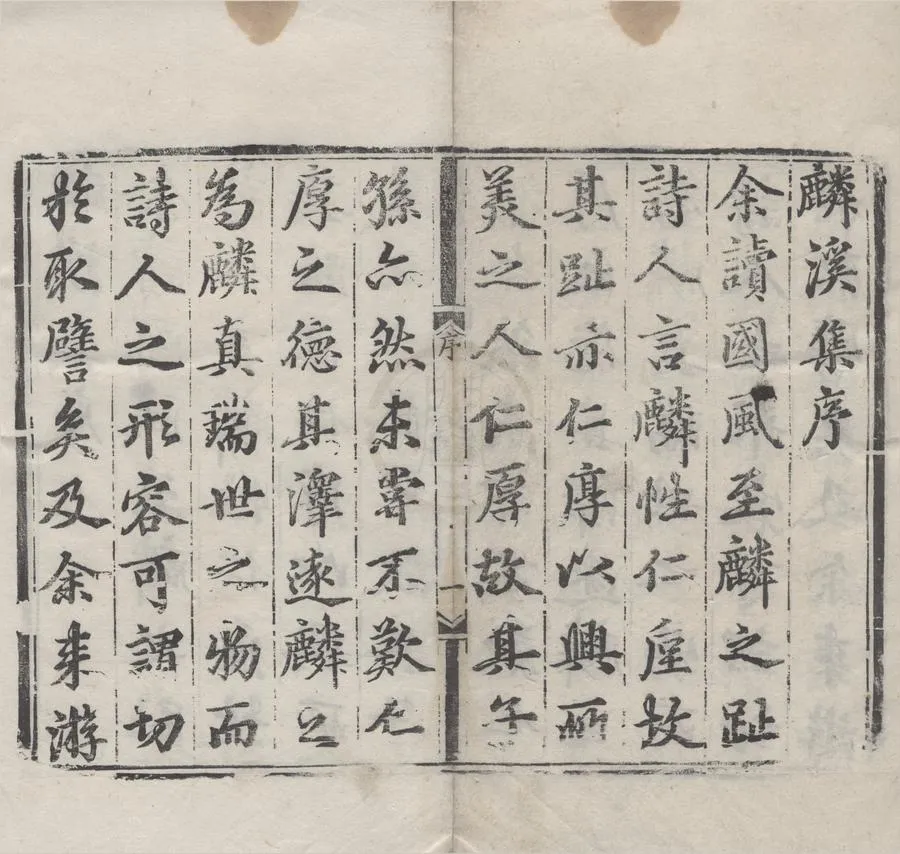 麟溪集序
余讀國風至麟之趾
詩人言麟性仁厚故
其趾亦仁厚以興所
美之人仁厚故其子
孫亦然未嘗不歎仁
厚之德其澤遠麟之
為麟真瑞世之物而
詩人之形容可謂切
於取譬矣及余來游
序
一